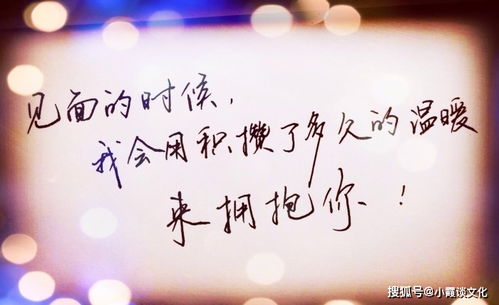 见面的时候，
我会用积攒了多久的温暖
来拥抱你、！
搜狐号@小霞谈文化